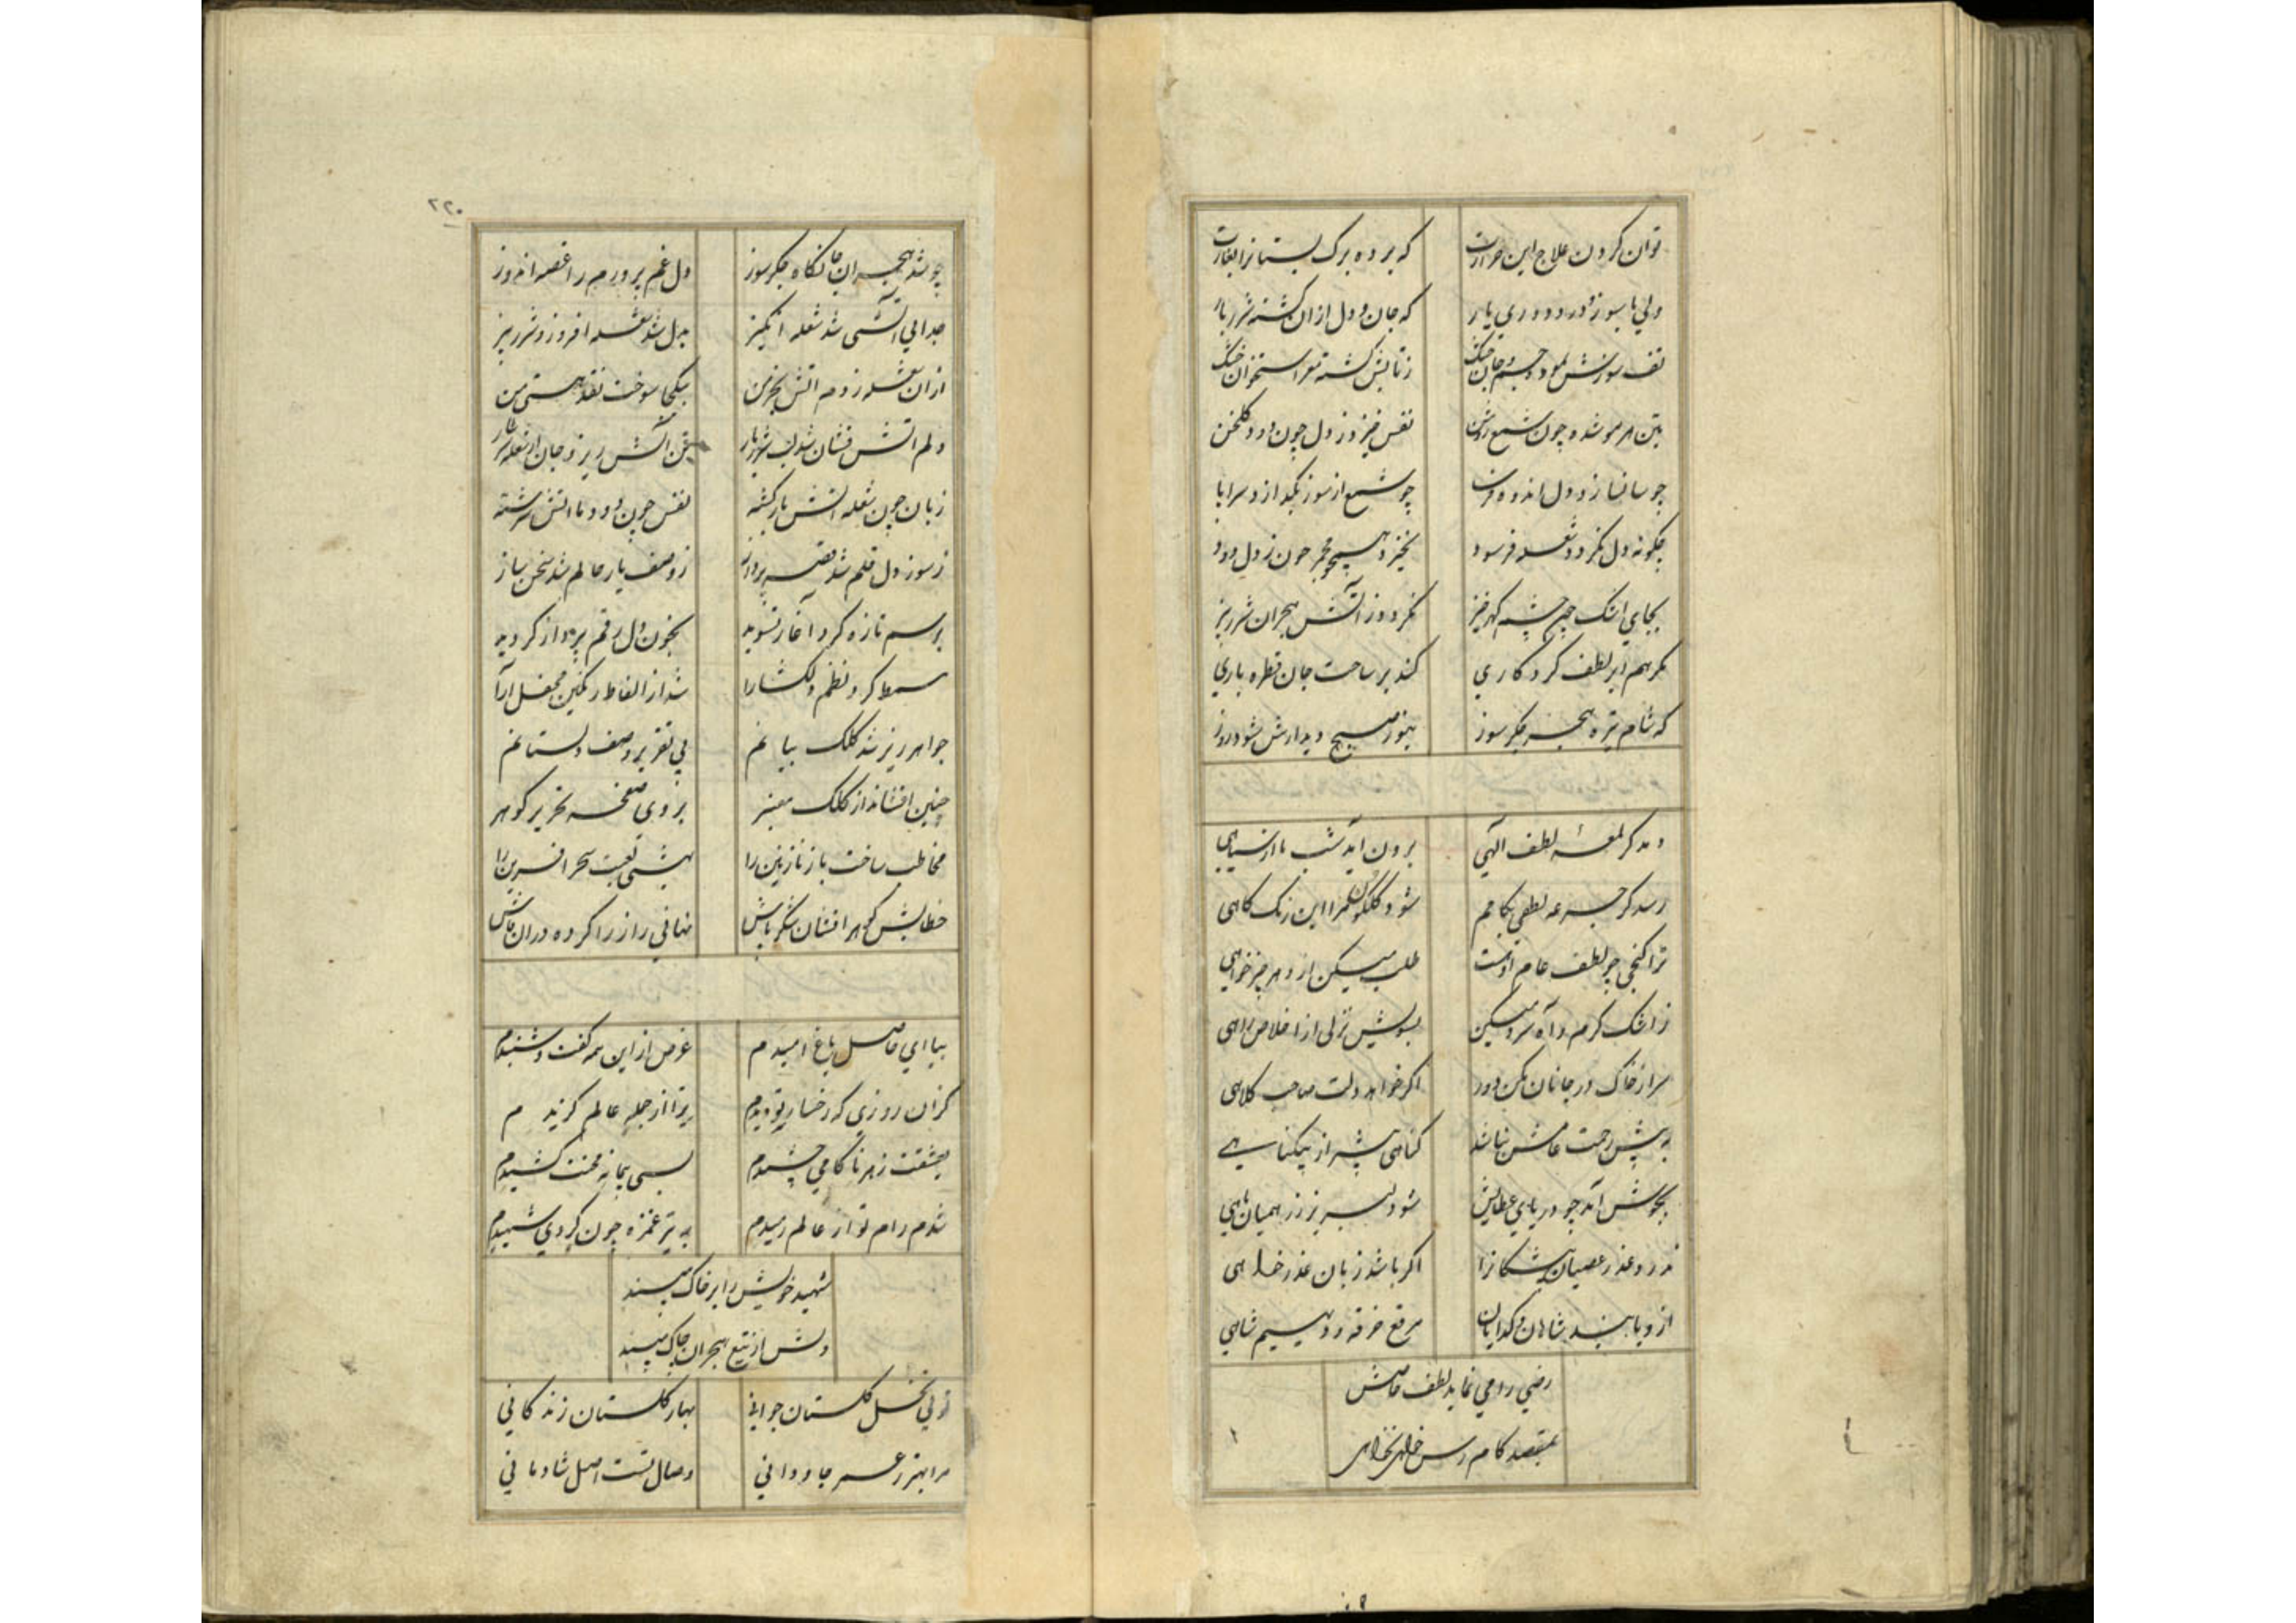 توان کردن علاج این حرارت که برده برک بستانرا بغارت
ولی با سوز درد دوری یار که جان و دل ازان کشته شرربار
تف سوزش جسم و جان خشک ز تابش کشته مغز استخوان خشک
بتن هر مو شده چون شمع روشن نفس خیزد ز دل چون دود کلخن
چو شمع از سوز نکدازد سراپا
چکونه دل نکردد شعله فرسود نخیزد همچو مجمر چون ز دل دود
بجای اشک چون چشم کهرخیز نکردد ز آتش هجران شررریز
مکر هم ابر لطف کردکاری کند بر ساحت جان قطره باری
که شام تیره هجر جکرسوز بنور صبح دیدارش شود روز
دمد کر لمعهٔ لطف آلهی برون آید شب ما از سیاهی
رسد کر جرعه لطفی بکامم شود کلکون مرا این رنک کاهی
ترا کنجی چو لطف عام او هست طلب میکن ازو هر چیز خواهی
ز اشک کرم و آه سرد میکن بسویش نزلی از اخلاص راهی
سر از خاک در جانان مکن دور اکر خواهد دلت صاحب کلاهی
به پیش رحمت عامش نباشد کناهی بیشتر از بیکناهی
بجوش آید چو دریای عطایش شود لبریز زر همیان ماهی
ندارد عذر عصیان پیشکانرا اکر باشد زبان عذرخواهی
ازو یابند شاهان و کدایان مرقع خرقه و دیهیم شاهی
رضی را می نماید لطف خاصش
بمقصد کام رس خواهی نخواهی
۲۲۰
چو شد هجران جانکاه جکرسوز دل غم پرورم را غصه اندوز
جدایی آتشی شد شعله انکیز بدل شد شعله افروز و شررریز
ازان شعله زده آتش بخرمن بیکجا سوخت نقد هستی من
دلم آتش فشان شد لب شرربار تن آتش ریز و جان از شعله سرشار
زبان چون شعله آتش بار کشته نفس چون دود با آتش سرشته
ز سوز دل قلم شد نغمه پرداز ز وصف یار حالم شد سخن ساز
برسم تازه کرد آغاز تسوید بخون دل رقم پرداز کردید
مسمط کرد نظم دلکشا را شد از الفاظ رنکین محفل آرا
جواهرریز شد کلک بیانم پی تقریر وصف دلستانم
چنین افشاند از کلک معنبر بروی صفحه تحریر کوهر
مخاطب ساخت باز نازنین را بت سحر آفرین را
خطابش کوهر افشان شکرپاش نهانی راز را کرده دران فاش
بیا ای حاصل باغ امیدم غرض از این همه کفت و شنیدم
کزان روزی که رخسار تو دیدم ترا از جمله عالم کزیدم
بعشقت زهر ناکامی چشیدم بسی پیمانه محنت کشیدم
شدم رام تو از عالم رمیدم به تیر غمزه چون کردی شهیدم
شهید خویش را بر خاک مپسند
دلش از تیغ هجران چاک مپسند
تویی نخل کلستان جوانی بهار کلستان زندکانی
مرا بهتر ز عمر جاودانی وصال تست اصل شادمانی